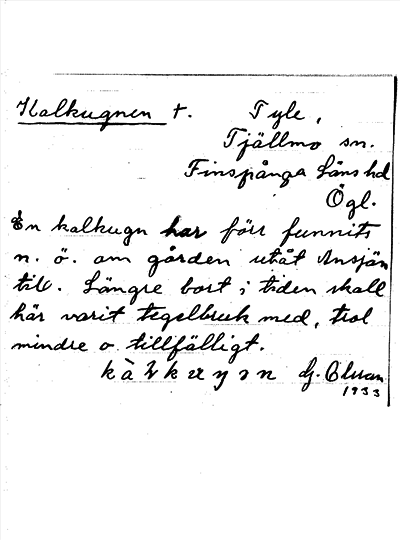 Kalkugnen t. Tyle,
Tjällmo sn.
Finspånga läns hd
Ögl.
En kalkugn har förr funnits
n. ö. om gården utåt Ansjön
till. Längre bort i tiden skall
här varit tegelbruk med, trol
mindre o. tillfälligt.
G.
1933